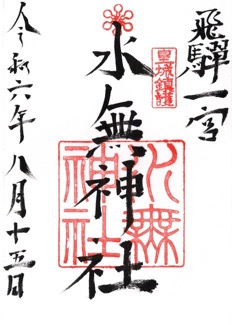 飛驒一宮
皇城鎮護
水無神社
水無神社
令和六年八月十五日